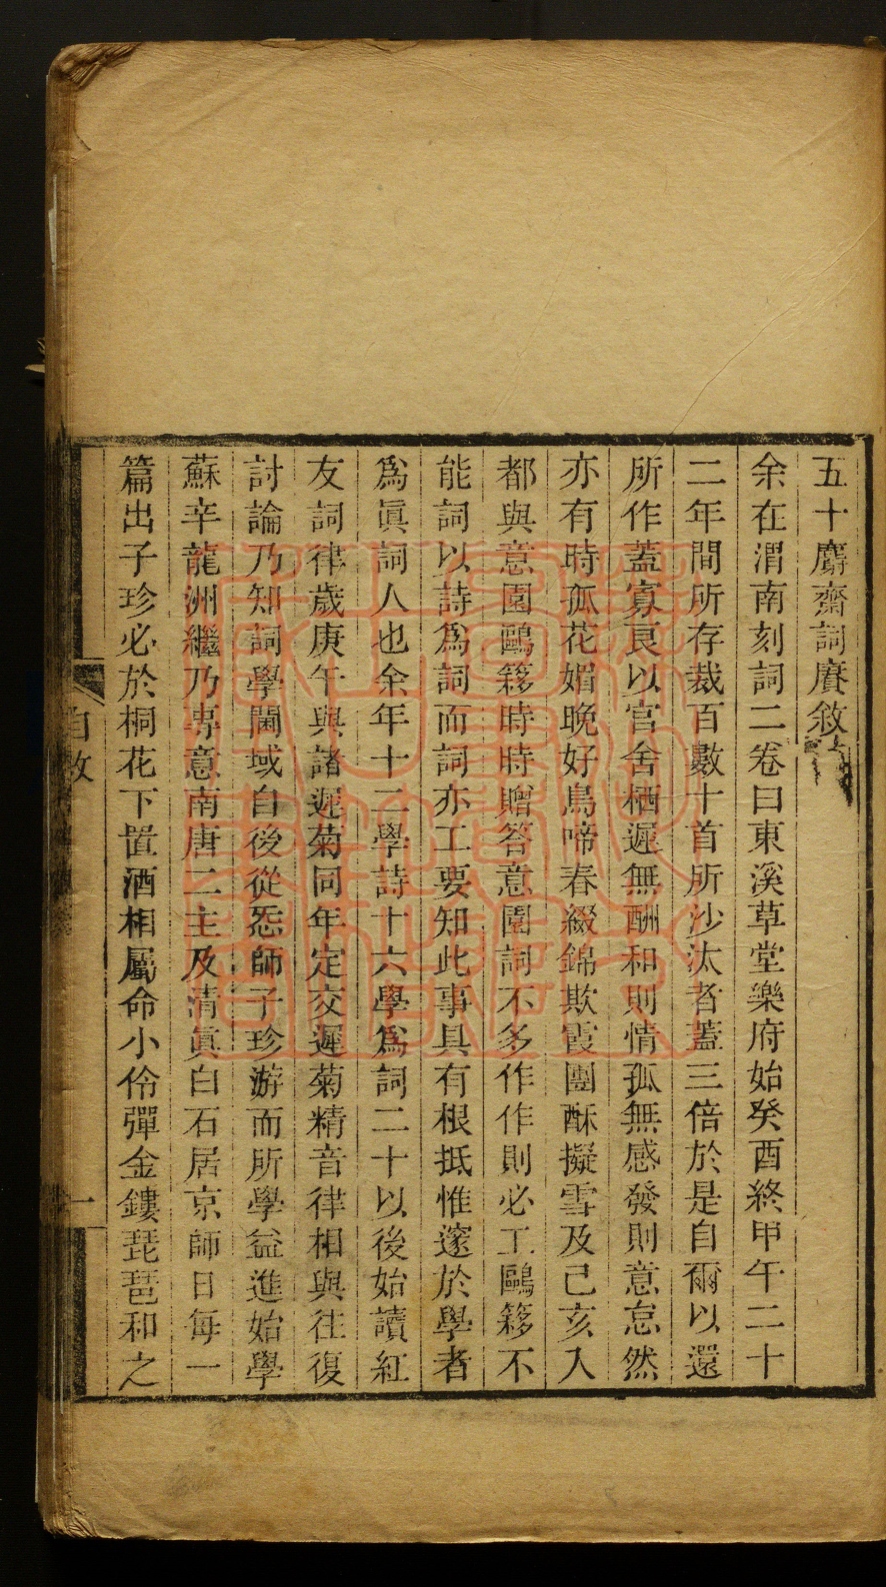 五十麝齋詞賡敘
余在渭南刻詞二卷曰東溪草堂樂府始癸酉終甲午二十
二年間所存裁百數十首所沙汰者蓋三倍於是自爾以還
所作蓋寡良以官舍栖遲無酬和則情孤無感發則意怠然
亦有時孤花媚晚好鳥啼春綴錦欺霞團酥擬雪及己亥入
都與意園鷗簃時時贈答意園詞不多作作則必工鷗簃不
能詞以詩爲詞而詞亦工要知此事具有根抵惟邃於學者
爲眞詞人也余年十二學詩十六學爲詞二十以後始讀紅
友詞律歲庚午與諸遲菊同年定交遲菊精音律相與往復
討論乃知詞學閫域自後從㤅師子珍游而所學益進始學
蘇辛龍洲繼乃專意南唐二主及清眞白石居京師日每一
篇出子珍必於桐花下置酒相屬命小伶彈金鏤琵琶和之
自敘
一